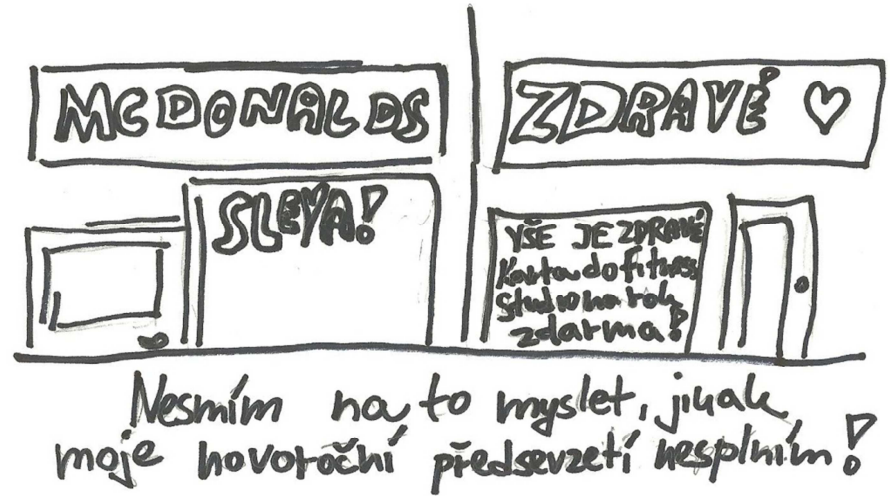 MCDONALDS
SLEVA!
ZDRAVÉ ♡
VŠE JE ZDRAVÉ
Karta do fitness
studio na rok
zdarma!
Nesmím na to myslet, jinak
moje novoroční předsevzetí nesplním!